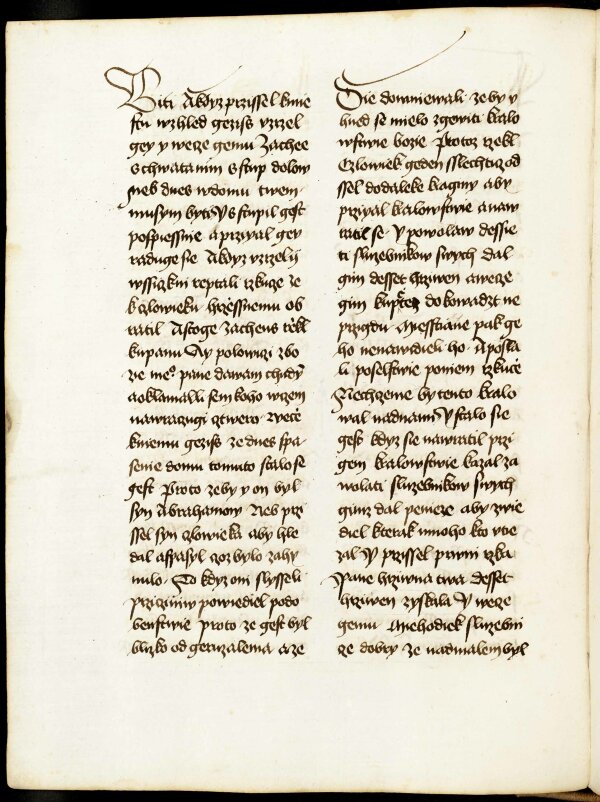 Giti Akdyz przissel kmie
stu wzhled geziss vzrzel
gey y wege gemu Zachee
schwatanim sstup dolow
neb dnes wdomu twem
musym byti Y sstupil gest
pospiessnie a przyal gey
raduge sie Akdyz vzrzely
wssiczkni reptali rzkuze ze
k czlowieku hrziessnemu ob
ratil A stoge Zacheus rzekl
ku panu Ay polowizi zbo
zie meho pane dawam chudym
a oklamalli sem koho wczem
nawraczugi cztwero Wecze
k niemu geziss ze dnes spa
senie domu tomuto stalo se
gest Proto zeby y on byl
syn Abrahamow Neb przi
ssel syn czlowieka aby hle
dal aspasyl czoz bylo zahy
nulo To kdyz oni slysseli
przicziniw powiediel podo
benstwie proto ze gest byl
blizko od geruzalema a ze
Sie domniewali zeby y
hned se mielo zgewiti kralo
wstwie bozie Protoz rzekl
Czlowiek geden sslechticz od
ssel do daleke kraginy aby
przyal kralowstwie a naw
ratil se Y powolaw dessie
ti sluzebnikow swych dal
gim desset hrziwen a wege
gim kupczte dokowadzt ne
przigdu Miesstiane pak ge
ho nenawidieli ho A posla
li poselstwie po niem rzkucze
Nechczeme by tento kralo
wal nad nami Y stalo sie
gest kdyz sie nawratil przi
gem kralowstwie kazal za
wolati sluzebnikow swych
gimz dal penieze aby zwie
diel kterak mnoho kto vtie
zal Y przissel prwni rzka
Pane hrziwna twa desset
hrziwen zyskala Y wege
gemu Anehodiek sluzebni
cze dobry ze nad malem byl